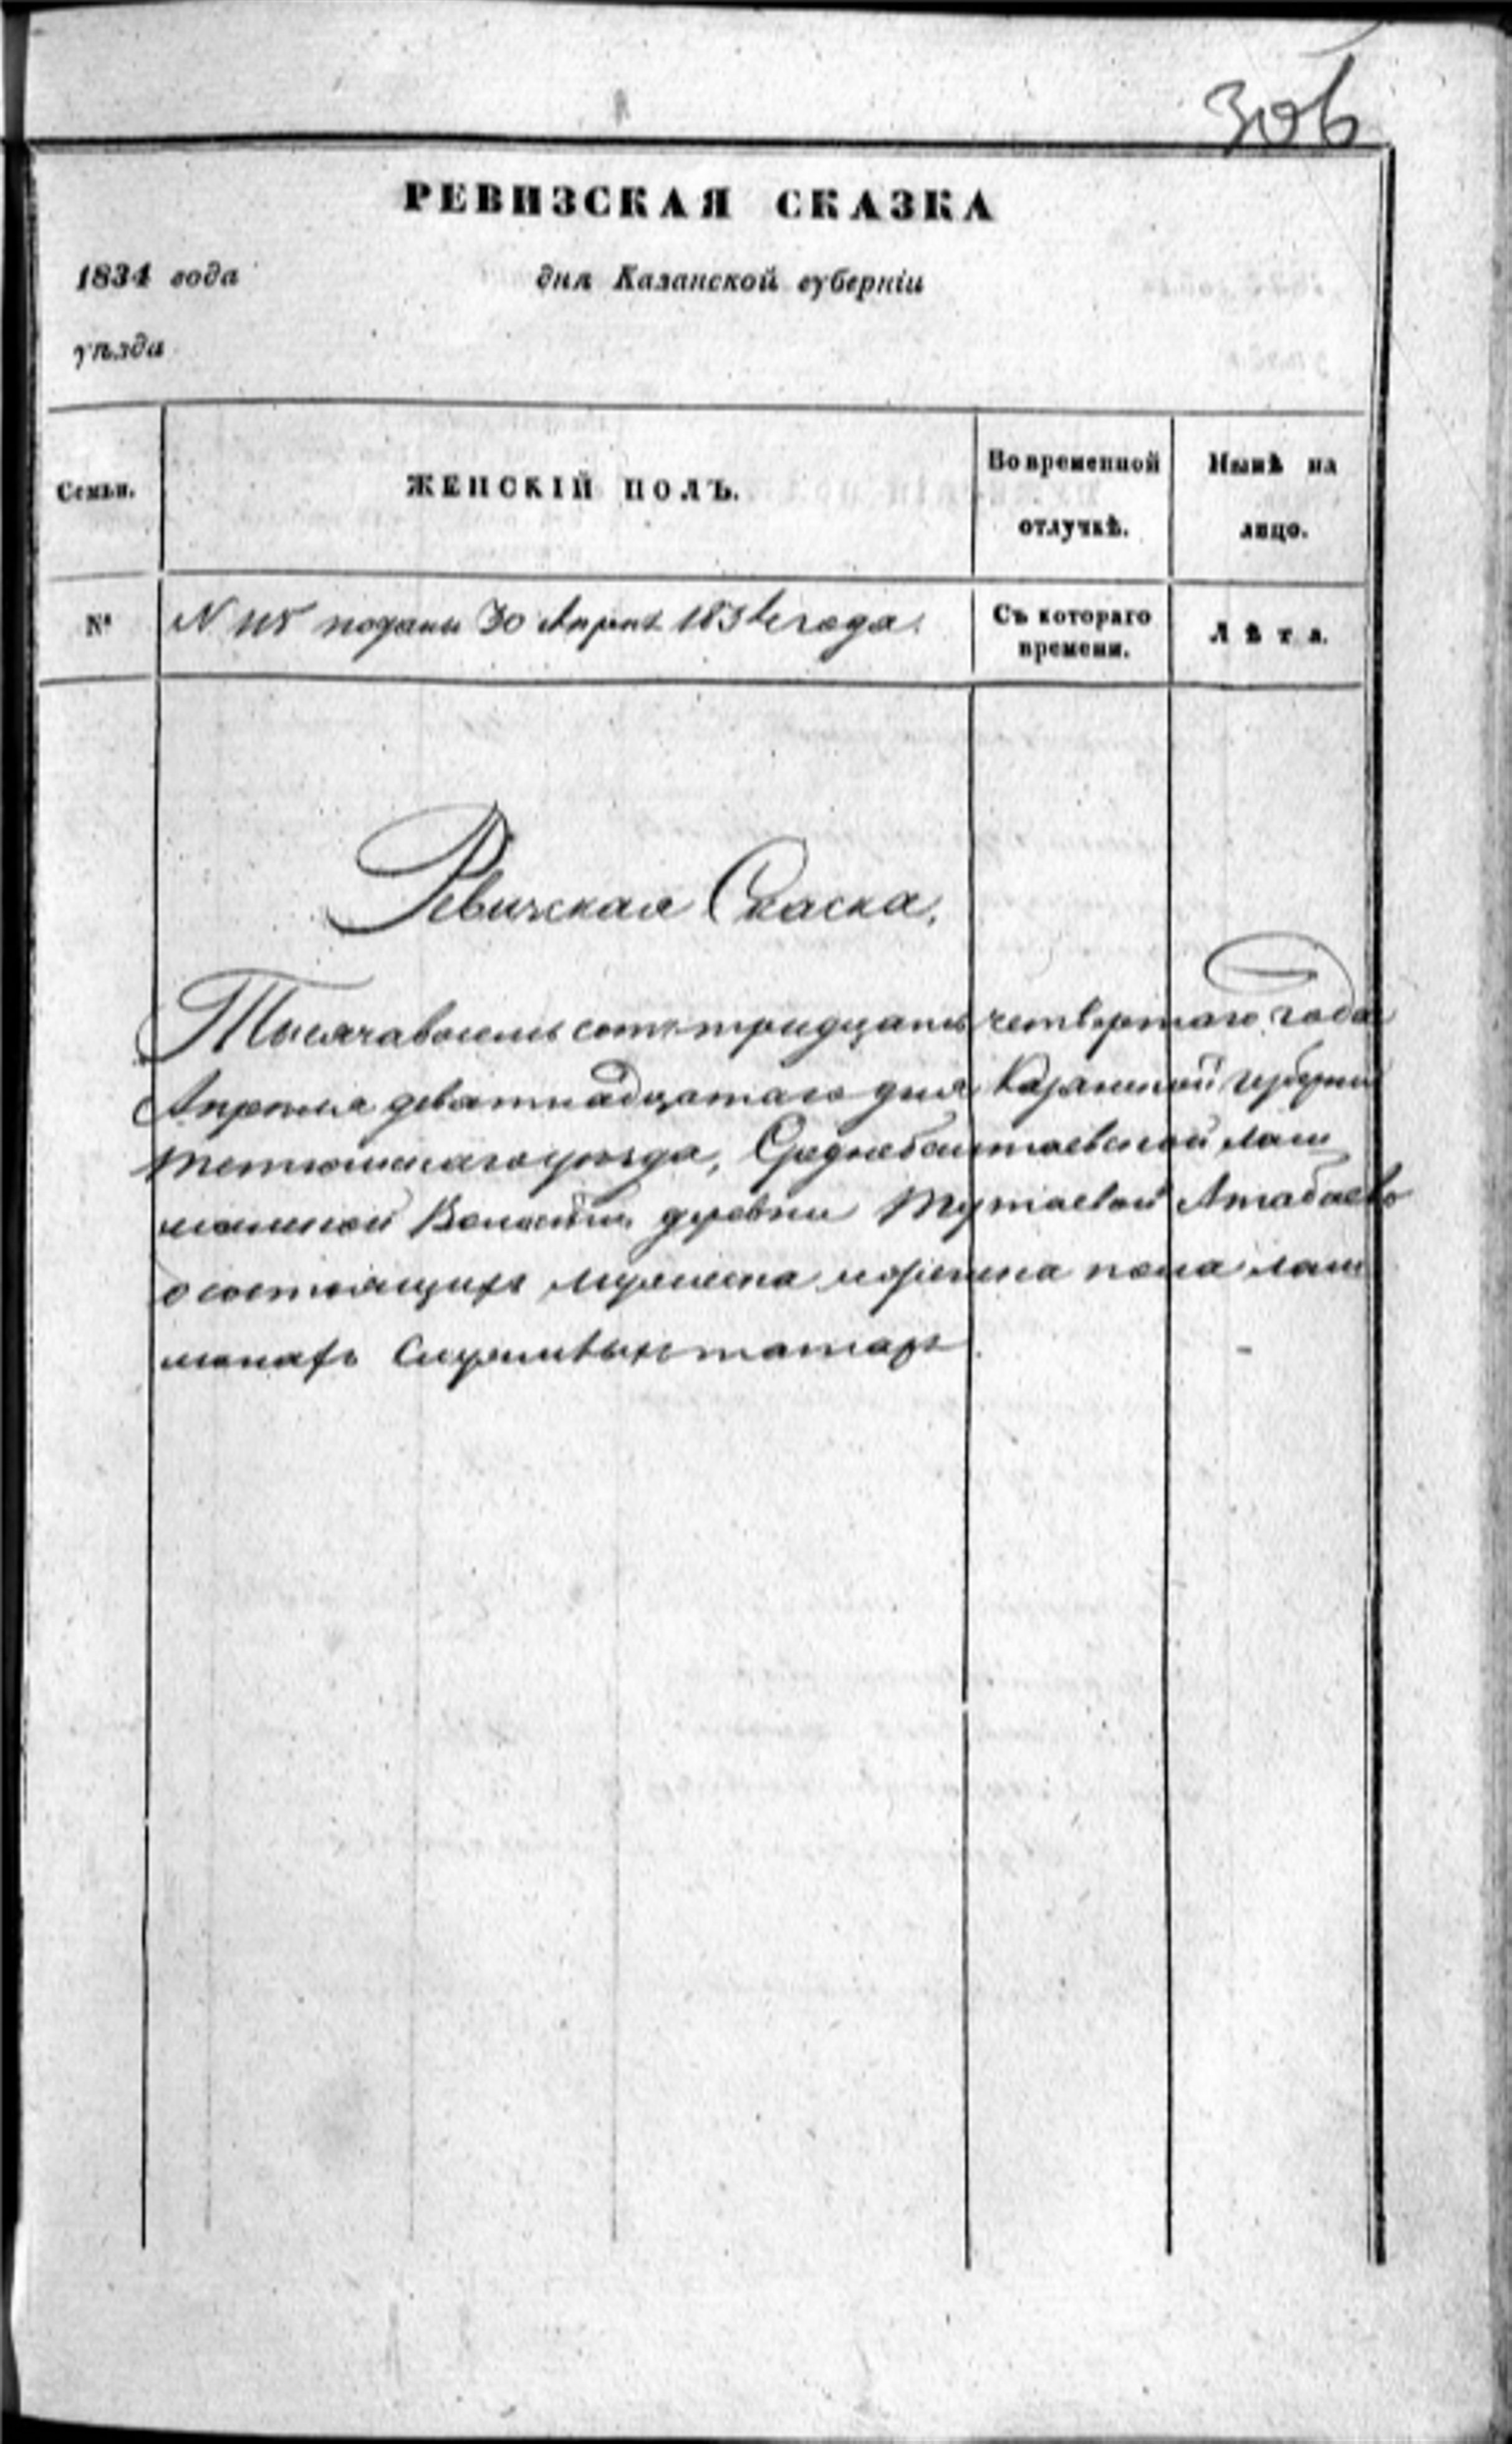 306
РЕВИЗСКАЯ СКАЗКА
1834 года дня Казанской губерніи
уѣзда
Семьи. ЖЕНСКІЙ ПОЛЪ. Во временной отлучкѣ. Нынѣ на лицо.
№ N подана 30 Апрѣл 1834 года. Съ котораго времени. Лѣта.
Ревижская Скаска.
Тысяча восемь сотъ тридцать четвертаго года
Апреля девятнадцатаго дня Казанской губерніи
тетюшскаго уѣзда, Среднебалтаевской лаш
манской Волости деревни Тутаевой Атабаево
о состоящихъ мужеска и женска пола лаш
манахъ служивыхъ татаръ.